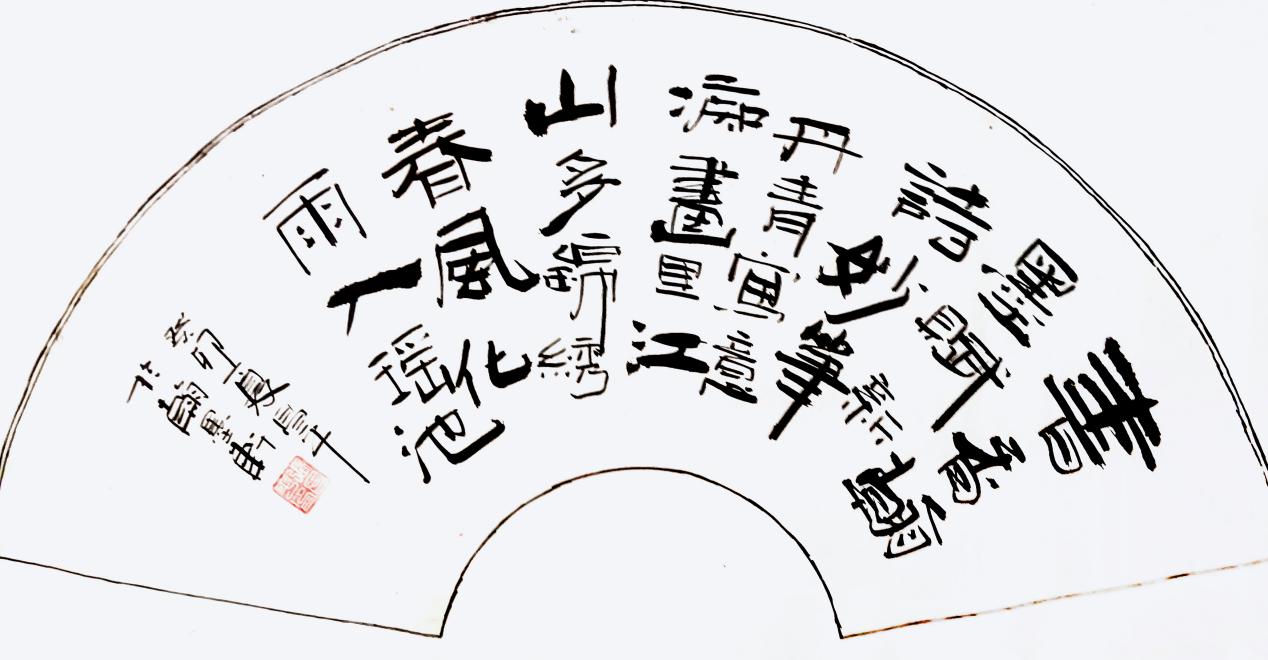 書香翰
墨賦新
詩妙筆
丹青寓意
畫里江
山多錦繡
春風化
雨入瑶池
癸卯夏昌平
於翰墨軒